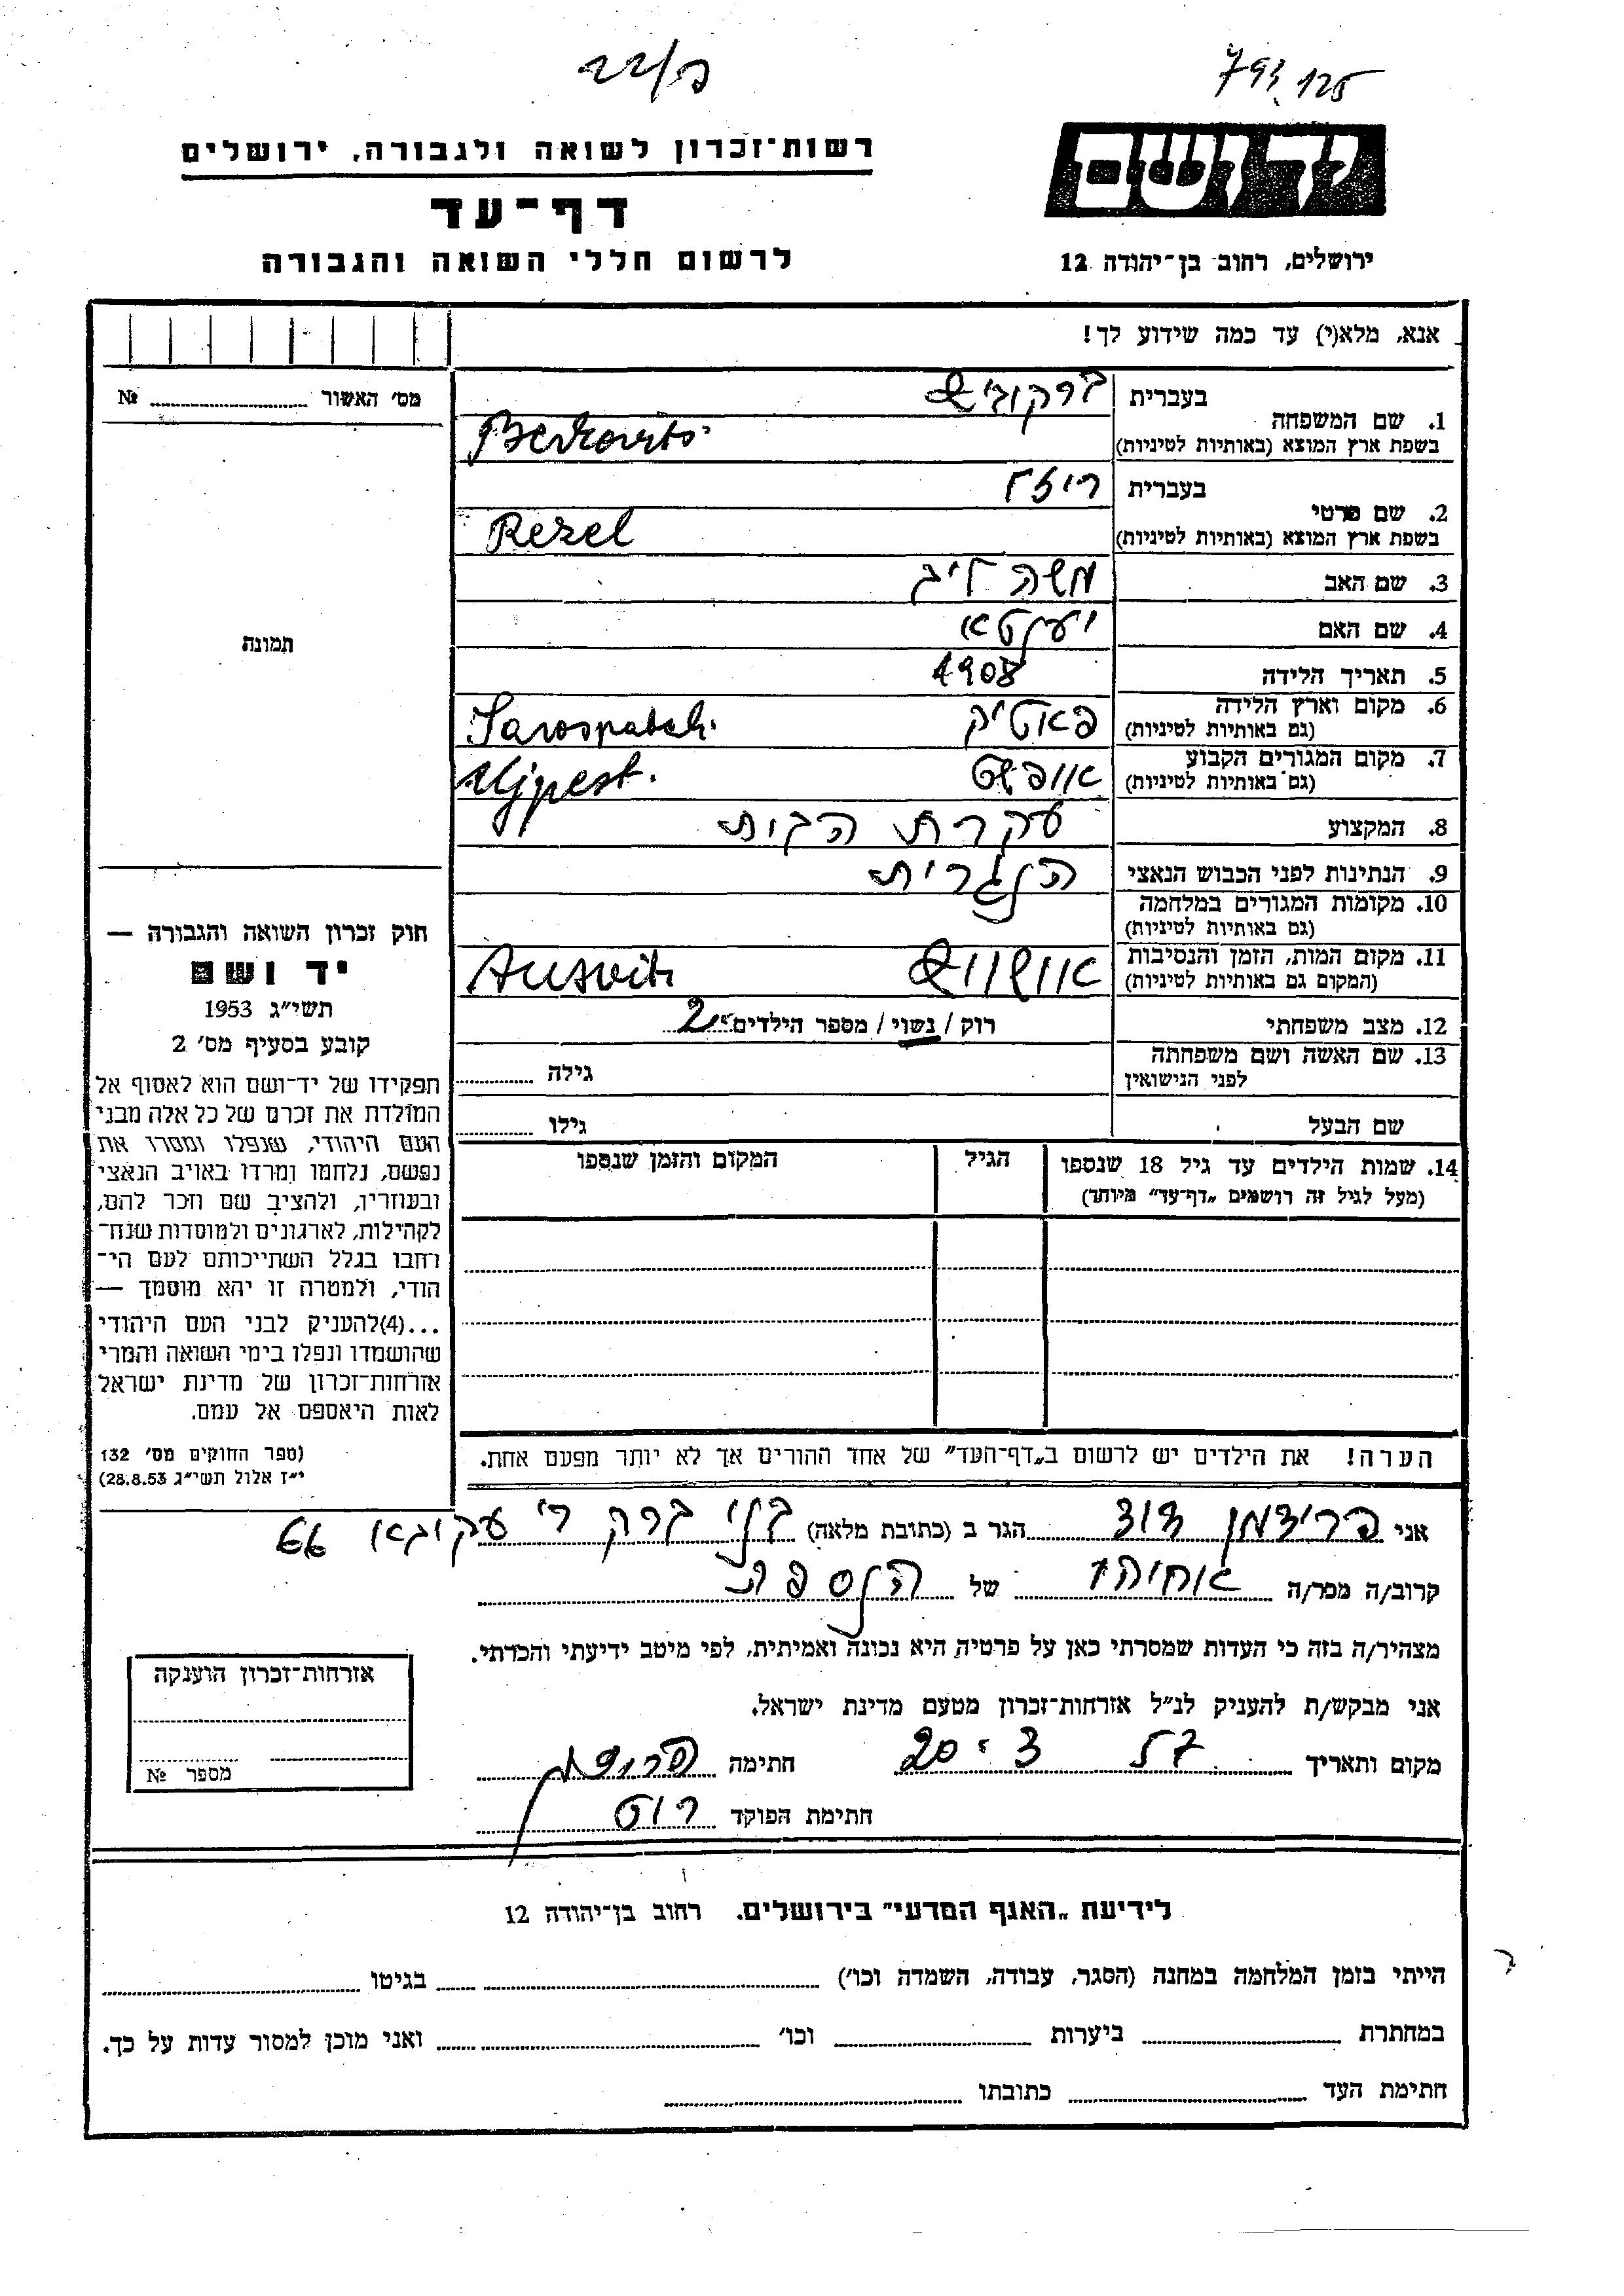 פ/22
793 125
יד ושם
ירושלים, רחוב בן־יהודה 12
רשות־זכרון לשואה ולגבורה, ירושלים
דף־עד
לרשום חללי השואה והגבורה
אנא, מלא(י) עד כמה שידוע לך!
מס׳ האשור ............ №
1. שם המשפחה
בעברית ברקוביץ
בשפת ארץ המוצא (באותיות לטיניות) Berkovits
2. שם פרטי
בעברית ריזל
בשפת ארץ המוצא (באותיות לטיניות) Rezel
3. שם האב משה ליב
4. שם האם יענטא
5. תאריך הלידה 1908
6. מקום וארץ הלידה פאטיק Sarospatak.
(גם באותיות לטיניות)
7. מקום המגורים הקבוע אויפשט Ujpest.
(גם באותיות לטיניות)
8. המקצוע עקרת הבית
9. הנתינות לפני הכבוש הנאצי הנגרית
10. מקומות המגורים במלחמה
(גם באותיות לטיניות)
11. מקום המות, הזמן והנסיבות אושוויץ Ausvitz
(המקום גם באותיות לטיניות)
12. מצב משפחתי רוק / נשוי / מספר הילדים 2
13. שם האשה ושם משפחתה גילה ............
לפני הנישואין
שם הבעל גילו ............
14. שמות הילדים עד גיל 18 שנספו הגיל המקום והזמן שנספו
(מעל לגיל זה רושמים „דף־עד״ מיוחד)
הערה! את הילדים יש לרשום ב„דף־העד״ של אחד ההורים אך לא יותר מפעם אחת.
תמונה
חוק זכרון השואה והגבורה —
יד ושם
תשי״ג 1953
קובע בסעיף מס׳ 2
תפקידו של יד־ושם הוא לאסוף אל
המולדת את זכרם של כל אלה מבני
העם היהודי, שנפלו ומסרו את
נפשם, נלחמו ומרדו באויב הנאצי
ובעוזריו, ולהציב שם וזכר להם,
לקהילות, לארגונים ולמוסדות שנח־
רחבו בגלל השתייכותם לעם הי־
הודי, ולמטרה זו יהא מוסמך —
...(4)להעניק לבני העם היהודי
שהושמדו ונפלו בימי השואה והמרי
אזרחות־זכרון של מדינת ישראל
לאות היאספם אל עמם.
(ספר החוקים מס׳ 132
י״ז אלול תשי״ג 28.8.53)
אני פרידמן דוד הגר ב (כתובת מלאה) בני ברק ר׳ עקיבא 66
קרוב/ה מכר/ה אחיה של הנספת
מצהיר/ה בזה כי העדות שמסרתי כאן על פרטיה היא נכונה ואמיתית, לפי מיטב ידיעתי והכרתי.
אני מבקש/ת להעניק לנ״ל אזרחות־זכרון מטעם מדינת ישראל.
מקום ותאריך 20 . 3 57 חתימה
חתימת הפוקד רוט
אזרחות־זכרון הוענקה
מספר №
לידיעת „האגף המדעי״ בירושלים. רחוב בן־יהודה 12
הייתי בזמן המלחמה במחנה (הסגר, עבודה, השמדה וכו׳) ............ בגיטו ............
במחתרת ............ ביערות ............ וכו׳ ............ ואני מוכן למסור עדות על כך.
חתימת העד ............ כתובתו ............